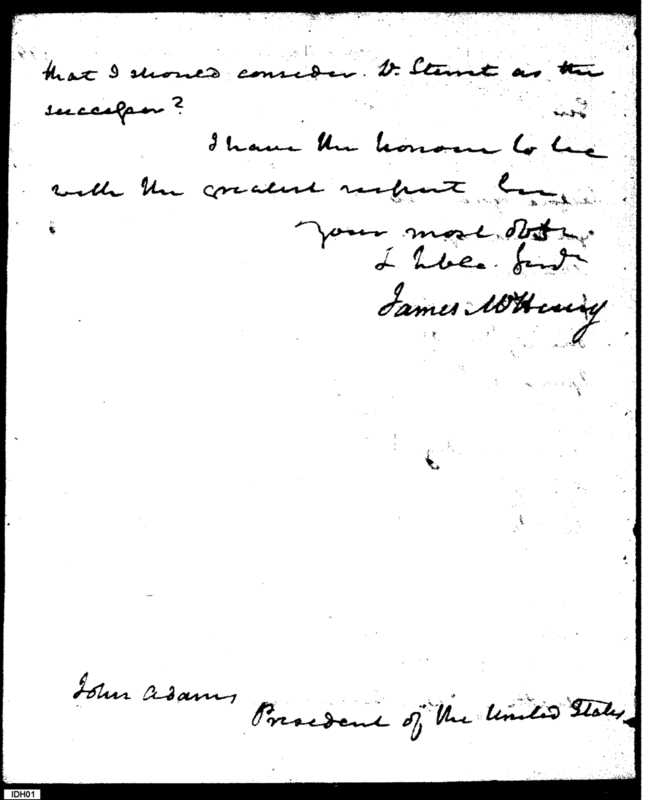 that I should consider V. Sterret as the
successor?
I have the honour to be
with the greatest respect Sir,
Your most obt.
& hble. Servt
James McHenry
John Adams
President of the United States
IDH01